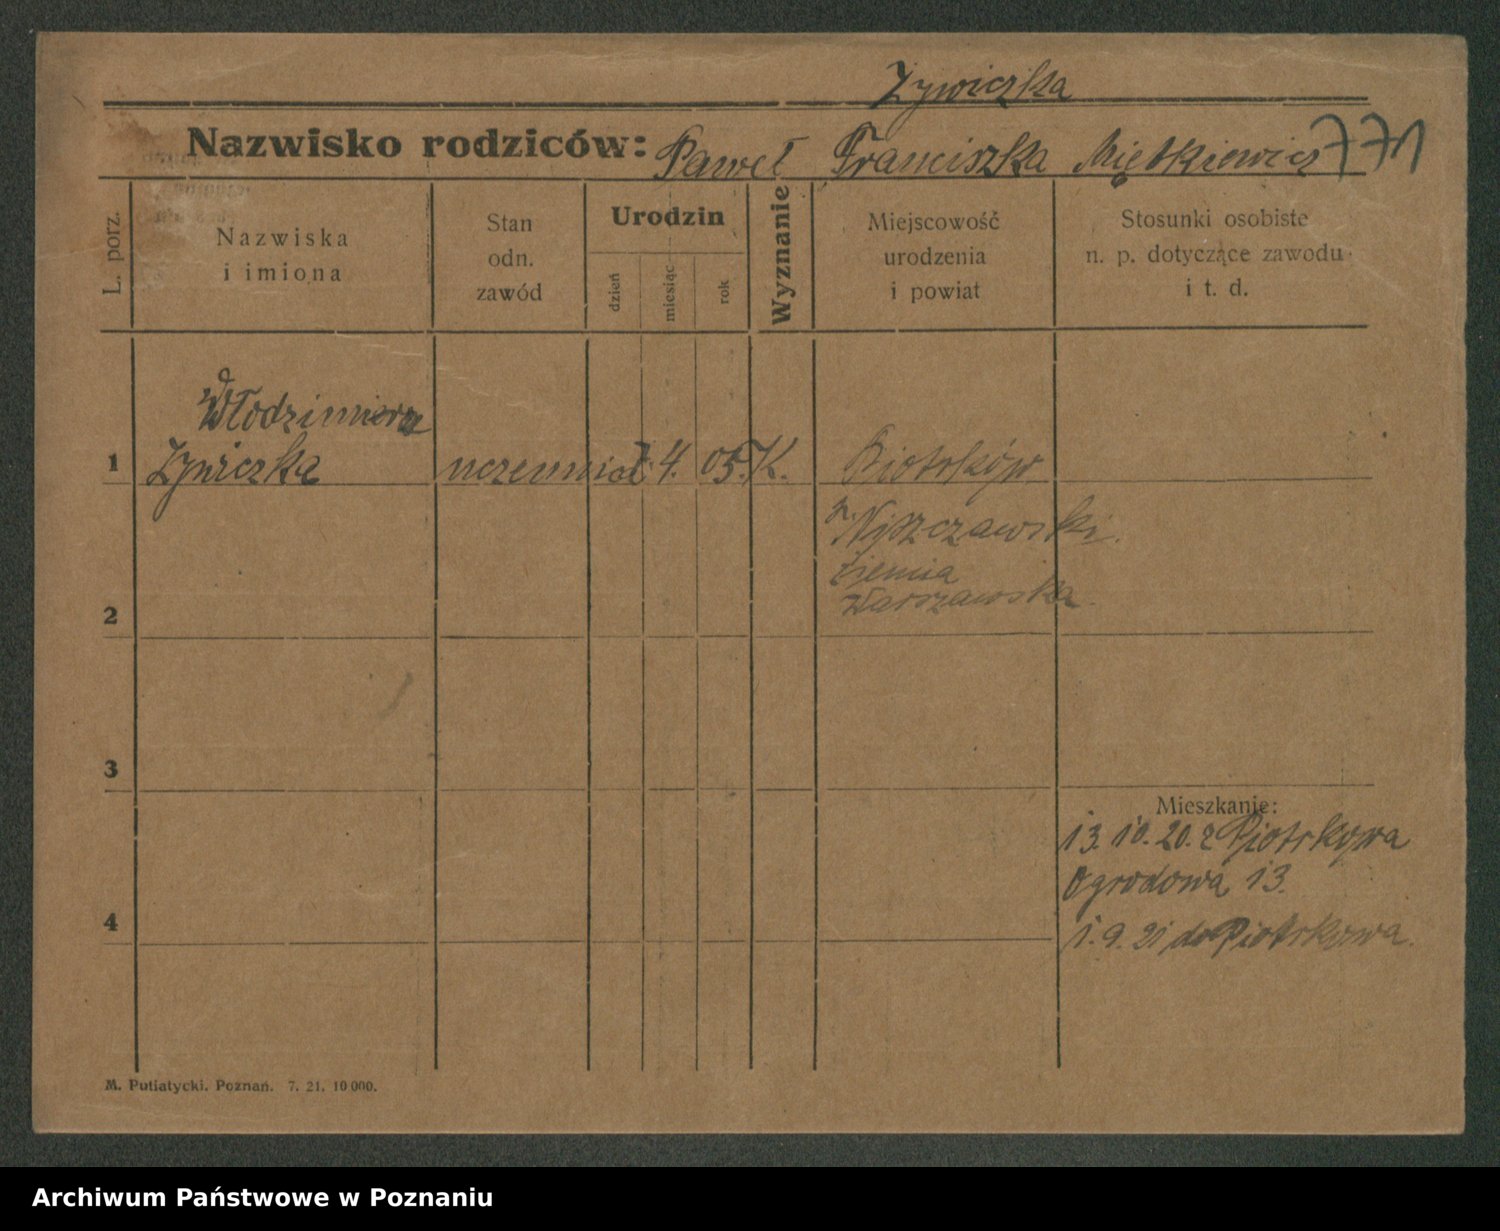 Zywiczka
Nazwisko rodziców: Paweł Franciszka Miętkiewicz 771
L. porz.
Nazwiska
i imiona
Stan
odn.
zawód
Urodzin
dzień
miesiąc
rok
Wyznanie
Miejscowość
urodzenia
i powiat
Stosunki osobiste
n. p. dotyczące zawodu
i t. d.
Włodzimiera
1 Zywiczka 4. 05. K. Piotrków
p. Niszczawski.
ziemia
Warszawska.
2
3
Mieszkanie:
13. 10. 20. z Piotrkowa
Ogrodowa 13.
4
1. 9. 21 do Piotrkowa.
M. Putiatycki. Poznań. 7. 21. 10 000.
Archiwum Państwowe w Poznaniu